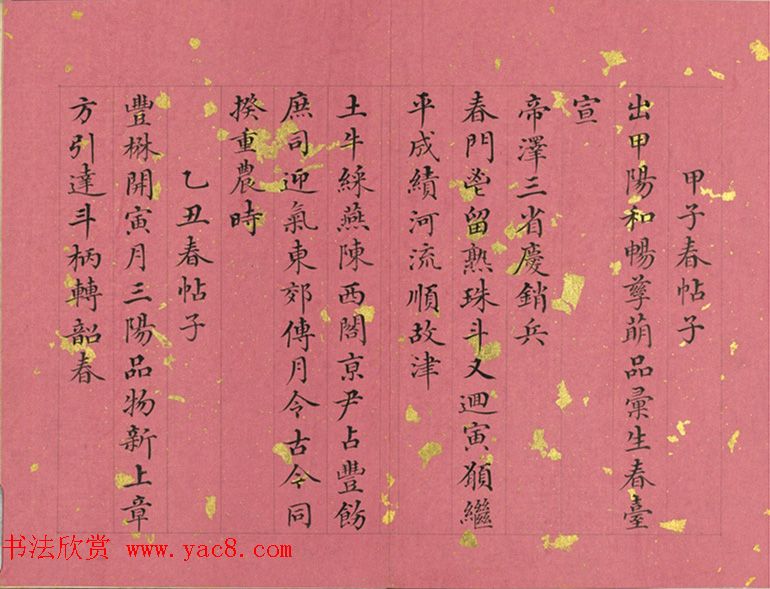 甲子春帖子
出甲陽和暢孳萌品彙生春臺
宣
帝澤三省慶銷兵
春門鬯留熟珠斗又迴寅願繼
平成績河流順故津
土牛綵燕陳西閣京尹占豐飭
庶司迎氣東郊傳月令古今同
揆重農時
乙丑春帖子
豐楙開寅月三陽品物新上章
方引達斗柄轉韶春
书法欣赏 www.yac8.com